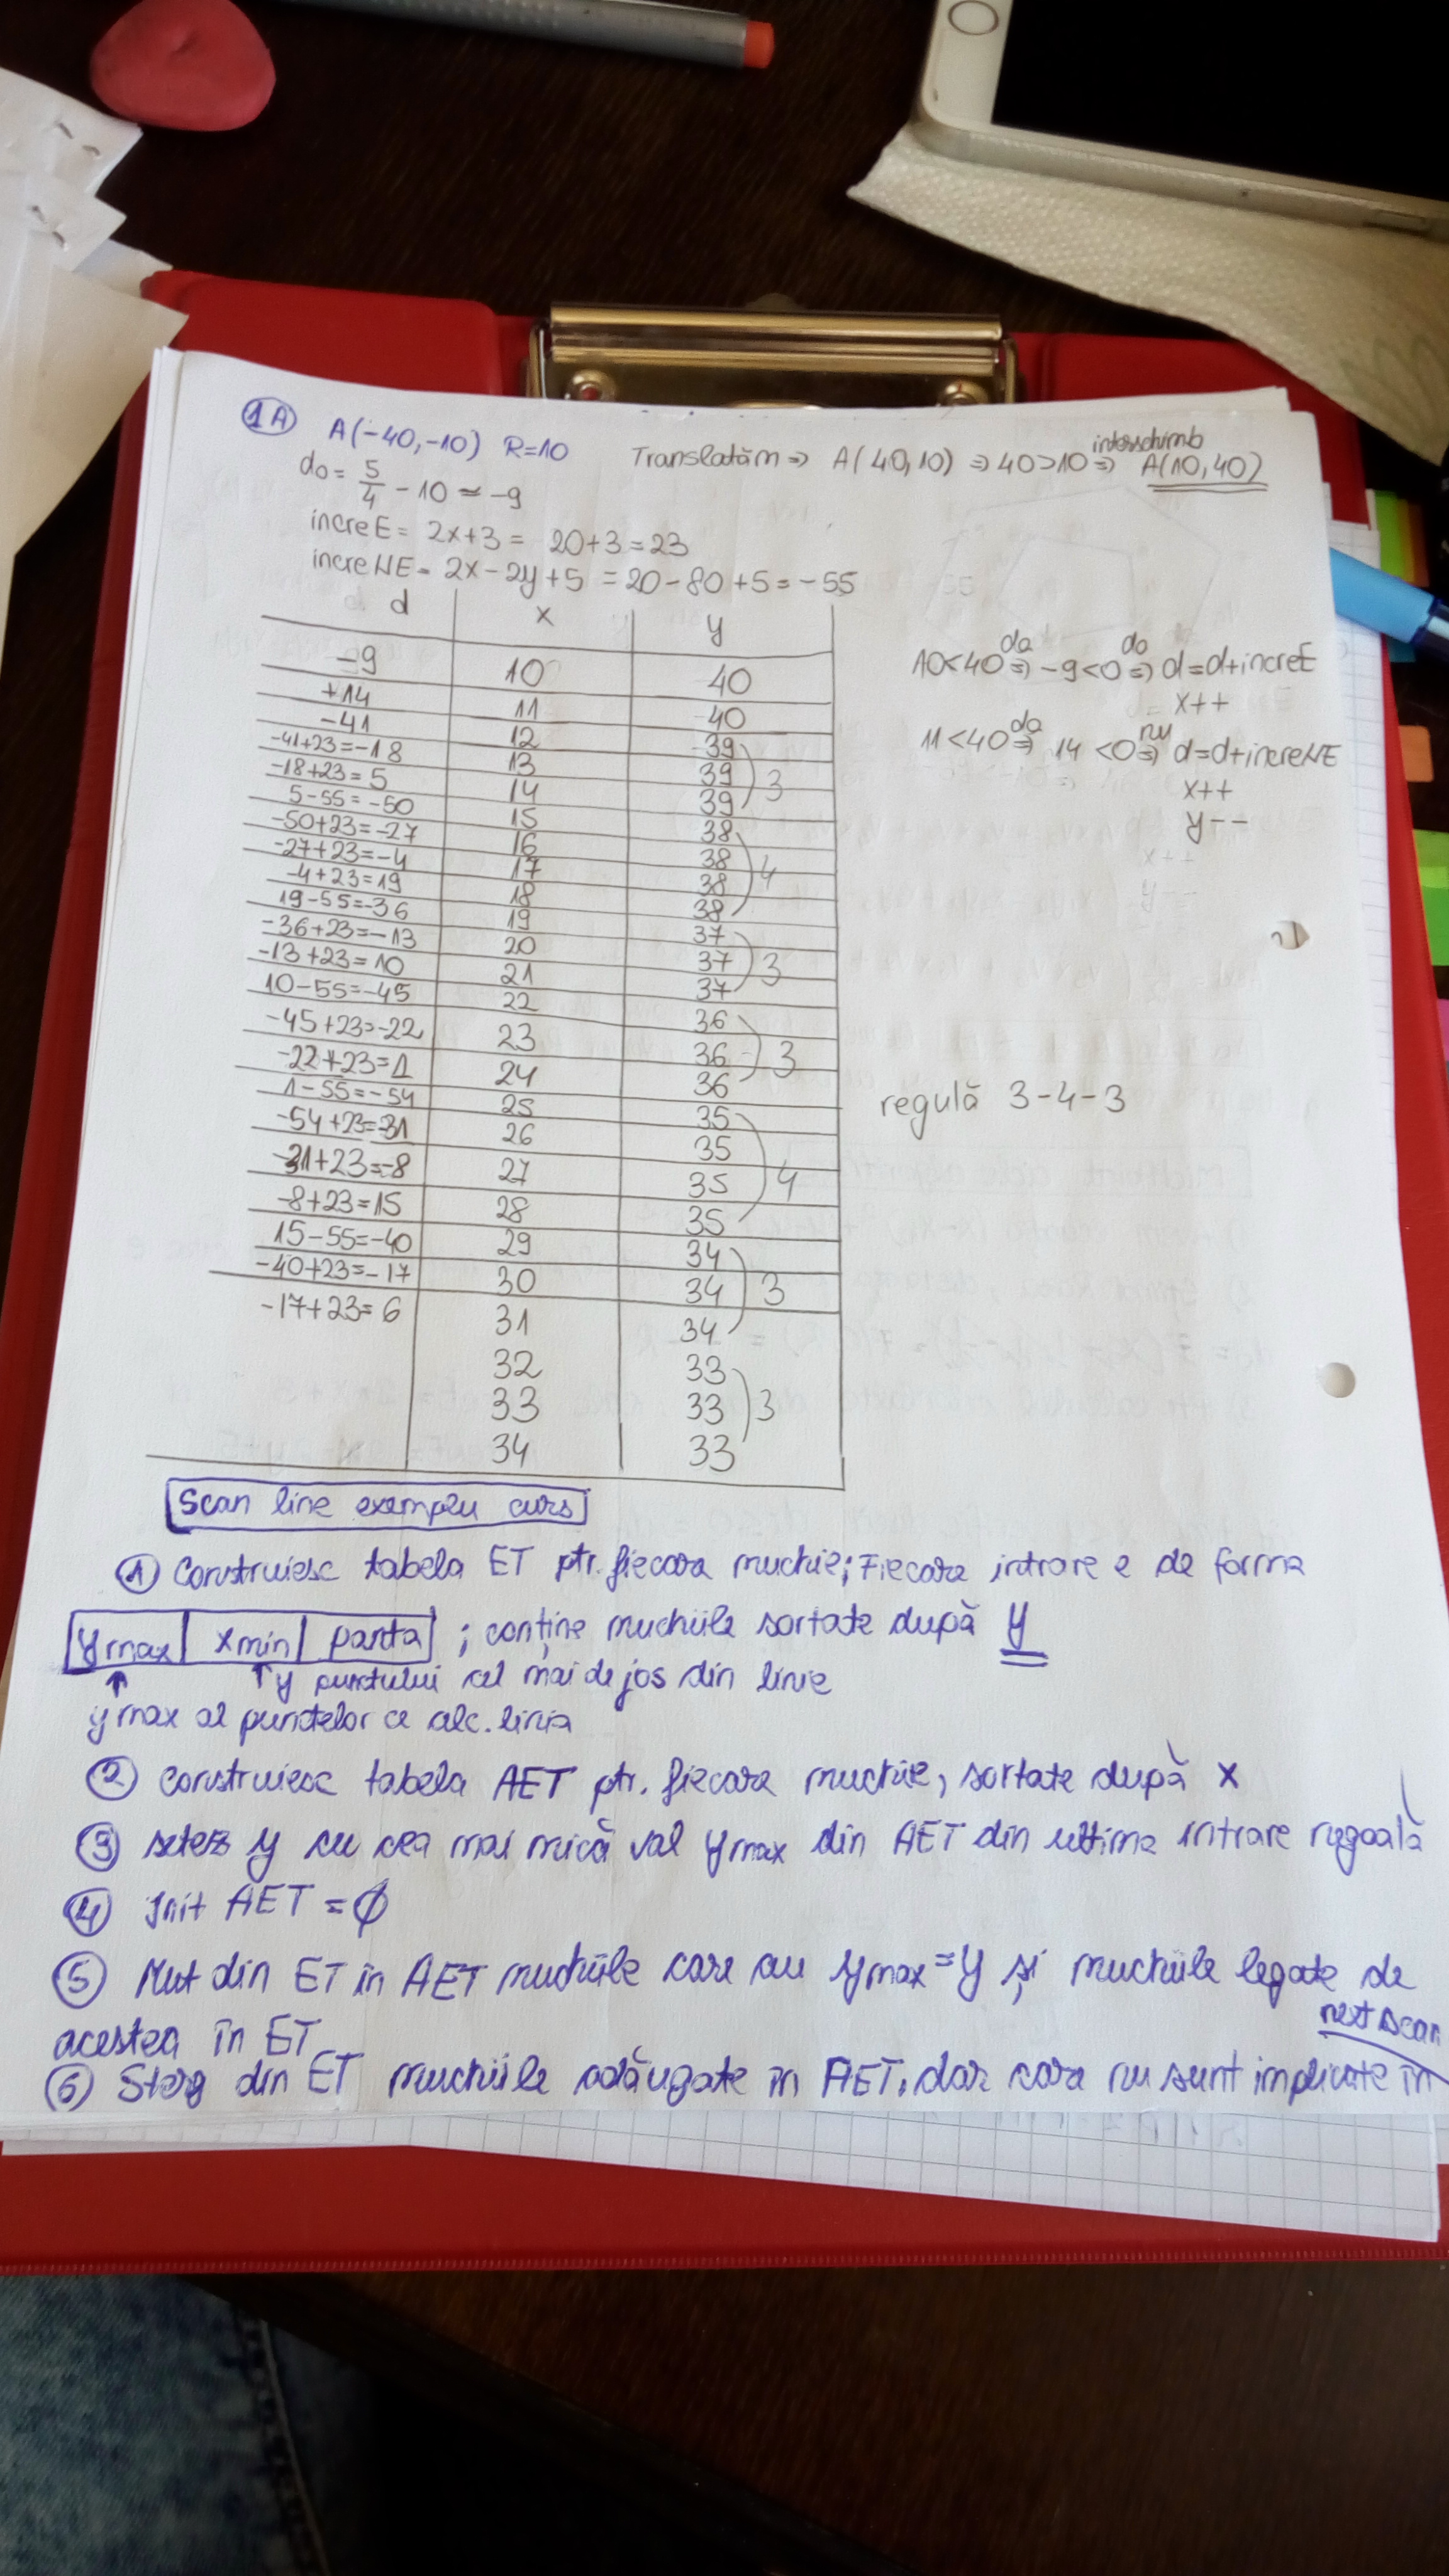 1A A(-40,-10) R=10 Translatăm => A(40,10) => 40>10 => interschimb A(10,40)
do = 5/4 - 10 = -9
increE = 2x+3 = 20+3 = 23
increNE = 2x-2y+5 = 20-80+5 = -55
d x y
-9 10 40
+14 11 40
-41 12 39
-41+23=-18 13 39
-18+23=5 14 39 3
5-55=-50 15 38
-50+23=-27 16 38
-27+23=-4 17 38 4
-4+23=19 18 38
19-55=-36 19 37
-36+23=-13 20 37 3
-13+23=10 21 37
10-55=-45 22 36
-45+23=-22 23 36 3
-22+23=1 24 36
1-55=-54 25 35
-54+23=-31 26 35
-31+23=-8 27 35 4
-8+23=15 28 35
15-55=-40 29 34
-40+23=-17 30 34 3
-17+23=6 31 34
32 33
33 33 3
34 33
10<40 da => -9<0 da => d=d+increE
x++
11<40 da => 14<0 nu => d=d+increNE
x++
y--
regulă 3-4-3
Scan line exemplu curs
1 Construiesc tabela ET ptr. fiecare muchie; Fiecare intrare e de forma
ymax | xmin | panta ; conține muchiile sortate după y
↑ ↑ y punctului cel mai de jos din linie
ymax al punctelor ce alc. linia
2 Construiesc tabela AET ptr. fiecare muchie, sortate după x
3 setez y cu cea mai mică val ymax din AET din ultima intrare negoală
4 Init AET = ∅
5 Mut din ET în AET muchiile care au ymax=y și muchiile legate de
acestea în ET
next scan
6 Sterg din ET muchiile adăugate în AET, dar care nu sunt implicate în